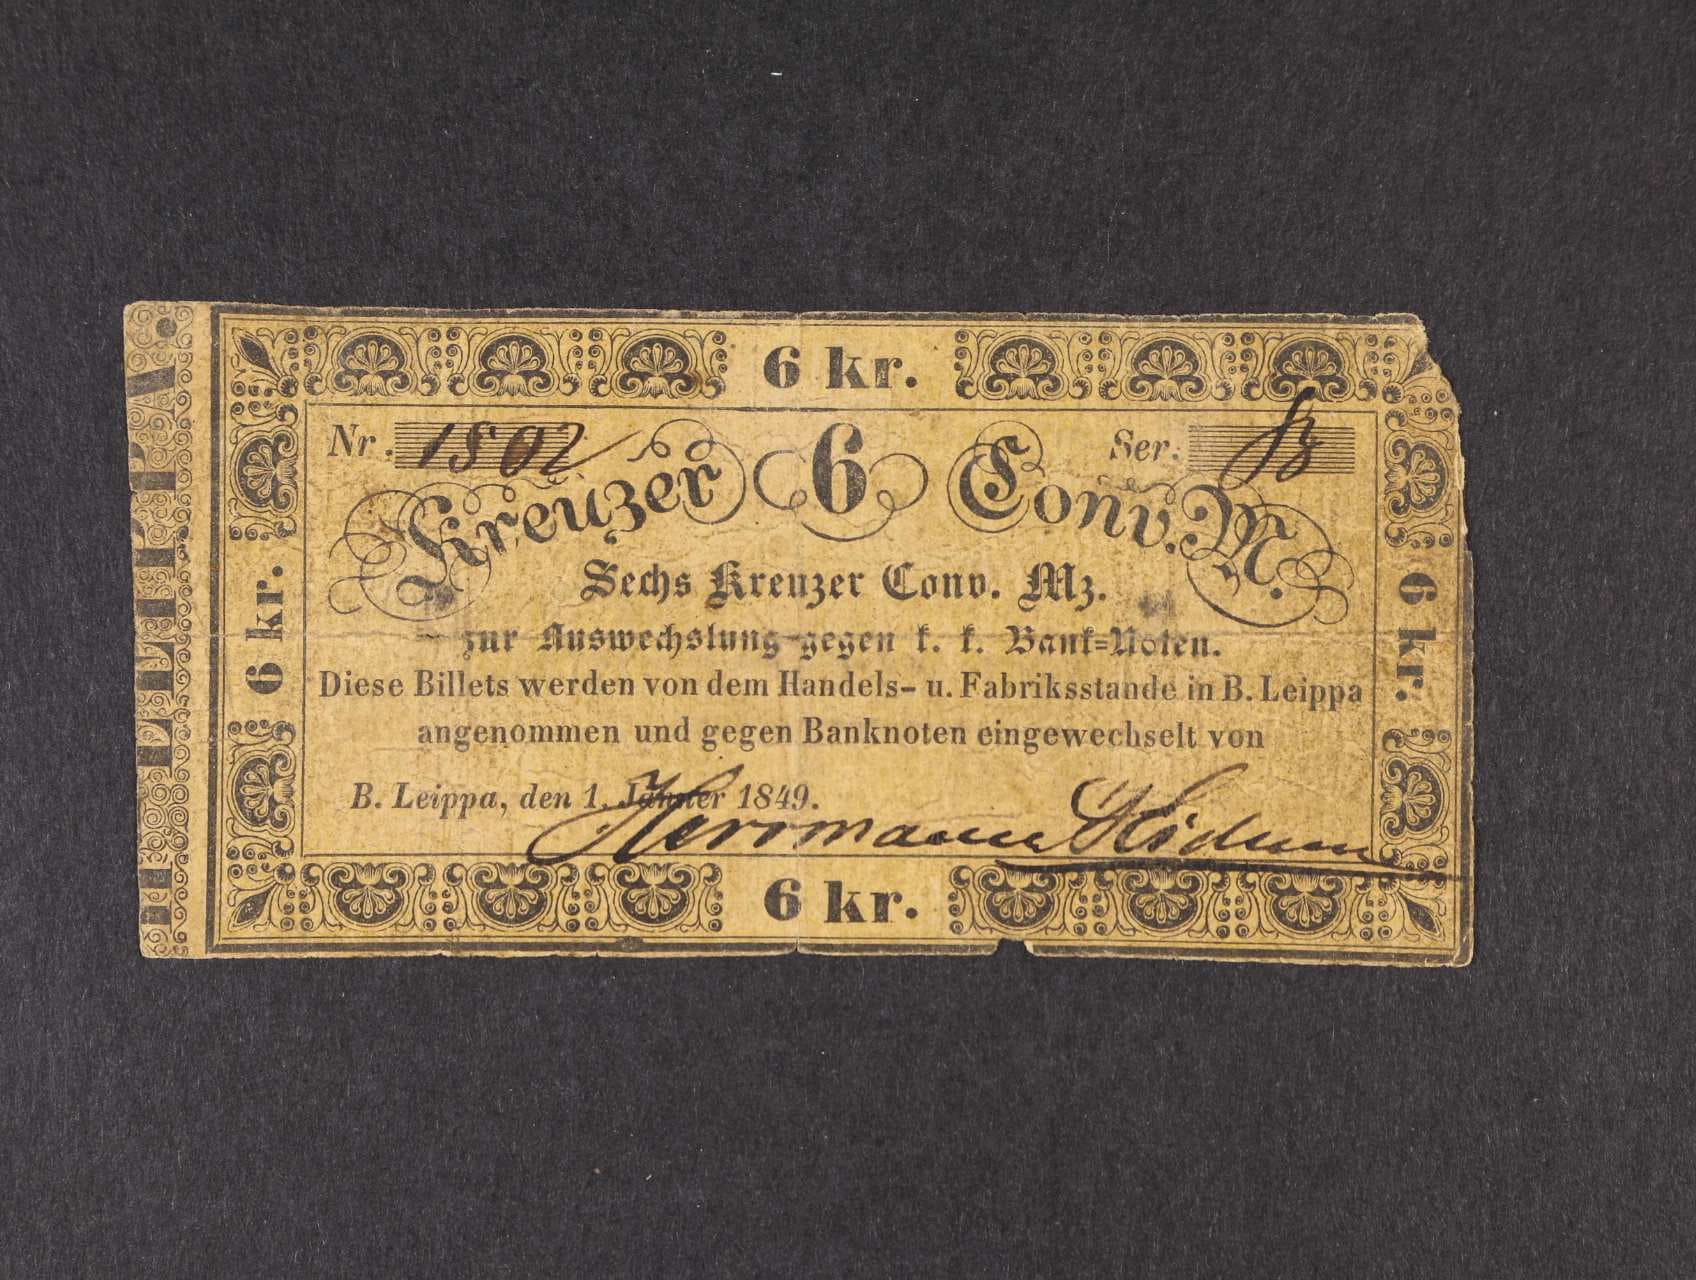 B. LEIPPA.
6 kr.
Nr. 1802 Ser.
Kreuzer 6 Conv. M.
Sechs Kreuzer Conv. Mz.
zur Auswechslung gegen k. k. Bank=Noten.
Diese Billets werden von dem Handels- u. Fabriksstande in B. Leippa
angenommen und gegen Banknoten eingewechselt von
B. Leippa, den 1. Jänner 1849.
Herrmann
6 kr.
6 kr.
6 kr.